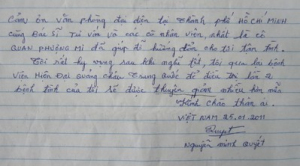 Cám ơn văn phòng đại diện tại Thành phố HỒ CHÍ MINH
cùng Bác Sĩ Tư vấn và các cô nhân viên, nhất là cô
QUAN PHƯƠNG MI đã giúp đỡ hướng dẫn cho tôi tận tình.
Tôi rất hy vọng sau khi nghỉ Tết, tôi qua lại bệnh
Viện Hiện Đại Quảng Châu Trung Quốc để điều trị
bệnh tình của tôi sẽ được thuyên giảm nhiều hơn nữa
Kính chào thân ái.
VIỆT NAM 25.01.2011
Nguyễn Minh Quyết